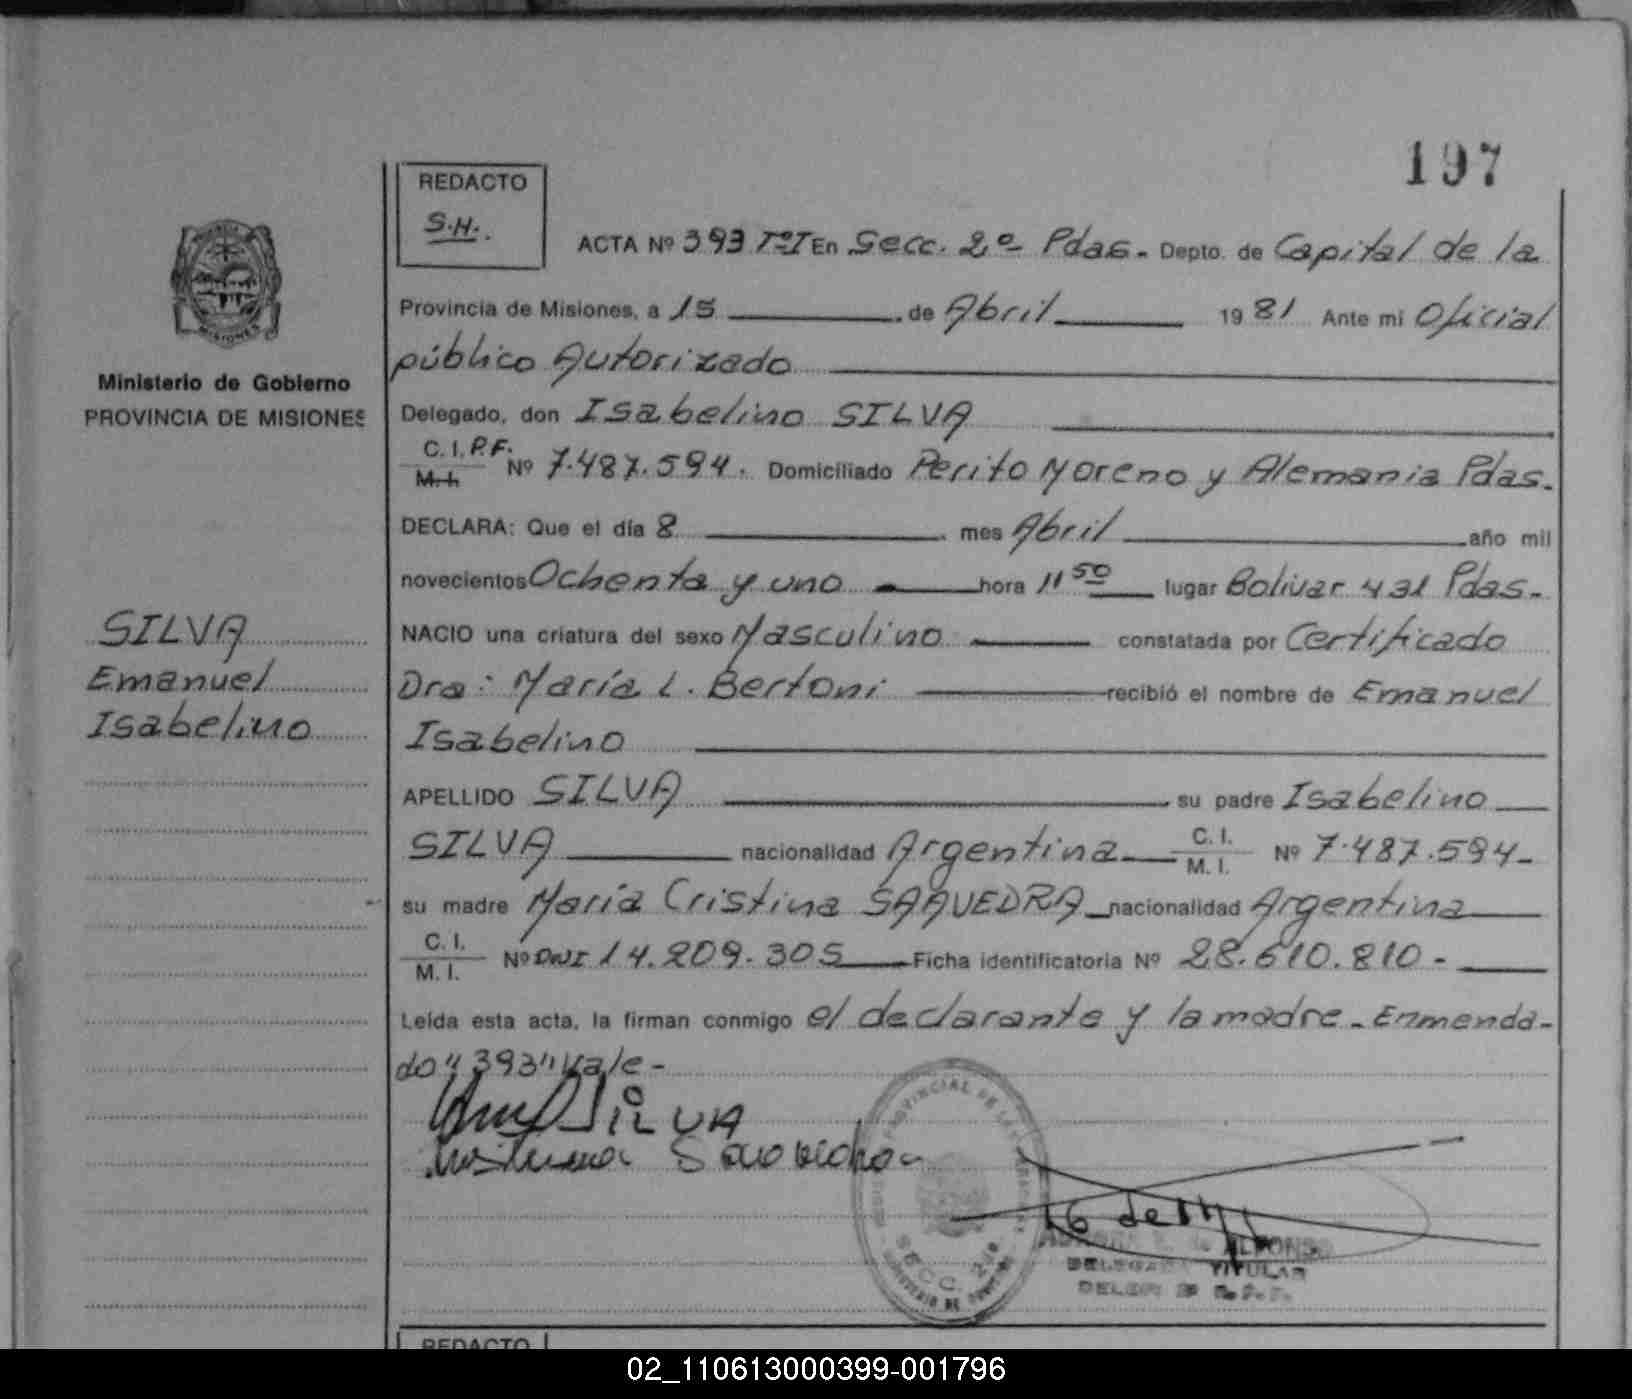 197
REDACTO
S.H.
ACTA Nº 393 TºI En Secc. 2º Pdas. Depto. de Capital de la
Provincia de Misiones, a 15 de Abril 1981 Ante mi Oficial
público Autorizado
Ministerio de Gobierno
PROVINCIA DE MISIONES
Delegado, don Isabelino SILVA
C.I. P.F. M.I. Nº 7.487.594. Domiciliado Perito Moreno y Alemania Pdas.
DECLARA: Que el día 8 mes Abril año mil
novecientos Ochenta y uno hora 11 50 lugar Bolivar 431 Pdas.
SILVA
Emanuel
Isabelino
NACIO una criatura del sexo Masculino constatada por Certificado
Dra: María L. Bertoni recibió el nombre de Emanuel
Isabelino
APELLIDO SILVA su padre Isabelino
SILVA nacionalidad Argentina C.I. M.I. Nº 7.487.594-
su madre María Cristina SAAVEDRA nacionalidad Argentina
C.I. M.I. Nº DNI 14.209.305 Ficha identificatoria Nº 28.610.810-
Leída esta acta, la firman conmigo el declarante y la madre. Enmenda-
do "393" Vale-
SILVA
Saavedra
PROVINCIAL DE
SECC. 2da
de ALFONSO
DELEGADA TITULAR
REDACTO
02_110613000399-001796